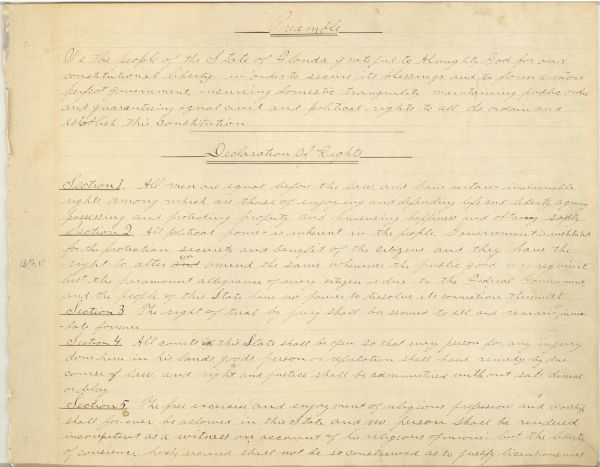 Preamble
We the people of the State of Florida, grateful to Almighty God for our
constitutional liberty in order to secure its blessings and to form a more
perfect government, insureing domestic tranquility maintaining public order
and guaranteeing equal civil and political rights to all, do ordain and
establish this Constitution
Declaration of Rights
Section 1. All men are equal before the law and have certain inalienable
rights among which are those of enjoying and defending life and liberty, acquiring
possessing and protecting property and pursueing happiness and obtaing safety
Section 2. All political power is inherent in the people Government is instituted
for the protection security and benefit of the citizens and they have the
right to alter or amend the same whenever the public good may require it
but the paramount allegiance of every citizen is due to the Federal Government
and the people of this State have no power to dissolve its connection therewith
Section 3 The right of trial by jury shall be secured to all and remain invio
late forever
Section 4. All courts in this State shall be open, so that every person for any injury
done him in his lands, goods person or reputation shall have remedy by due
course of law, and right and justice shall be administered without sale denial
or delay
Section 5. The free excercise and enjoyment of religious profession and worship
shall forever be allowed in this State and no person shall be rendered
incompetent as a witness on account of his religious opinions: but the liberty
of conscience hereby secured shall not be so construed as to justify licentiousness